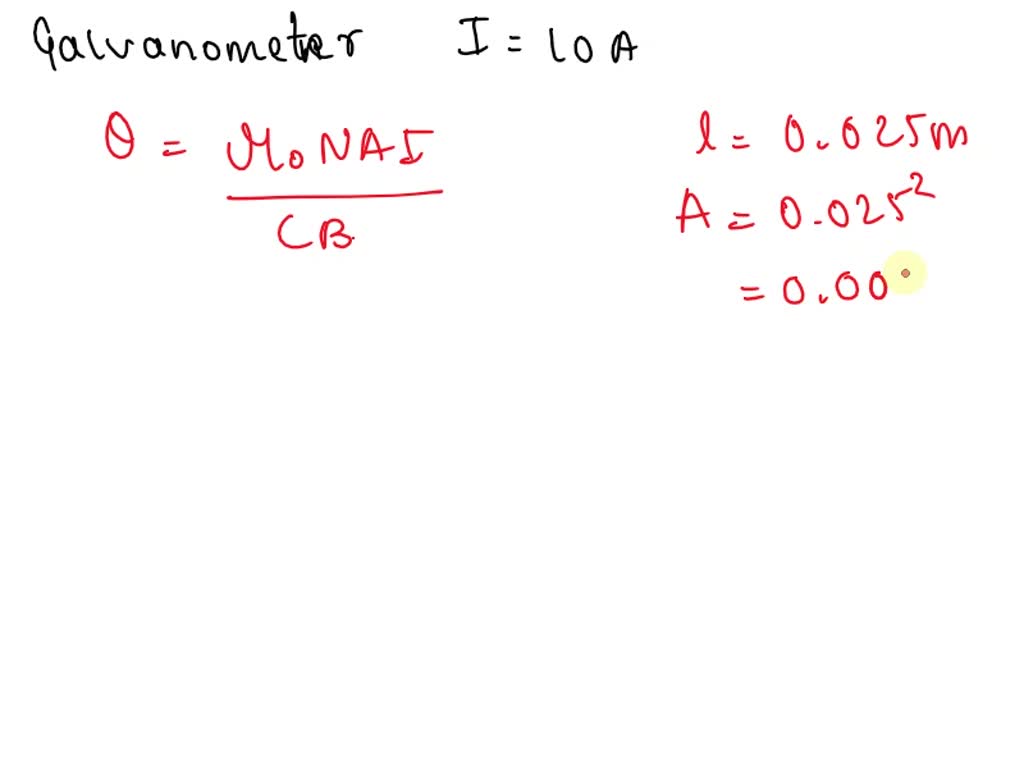 Galvanometer I = 10 A
θ = μ₀NAI / CB
l = 0.025m
A = 0.025²
= 0.00